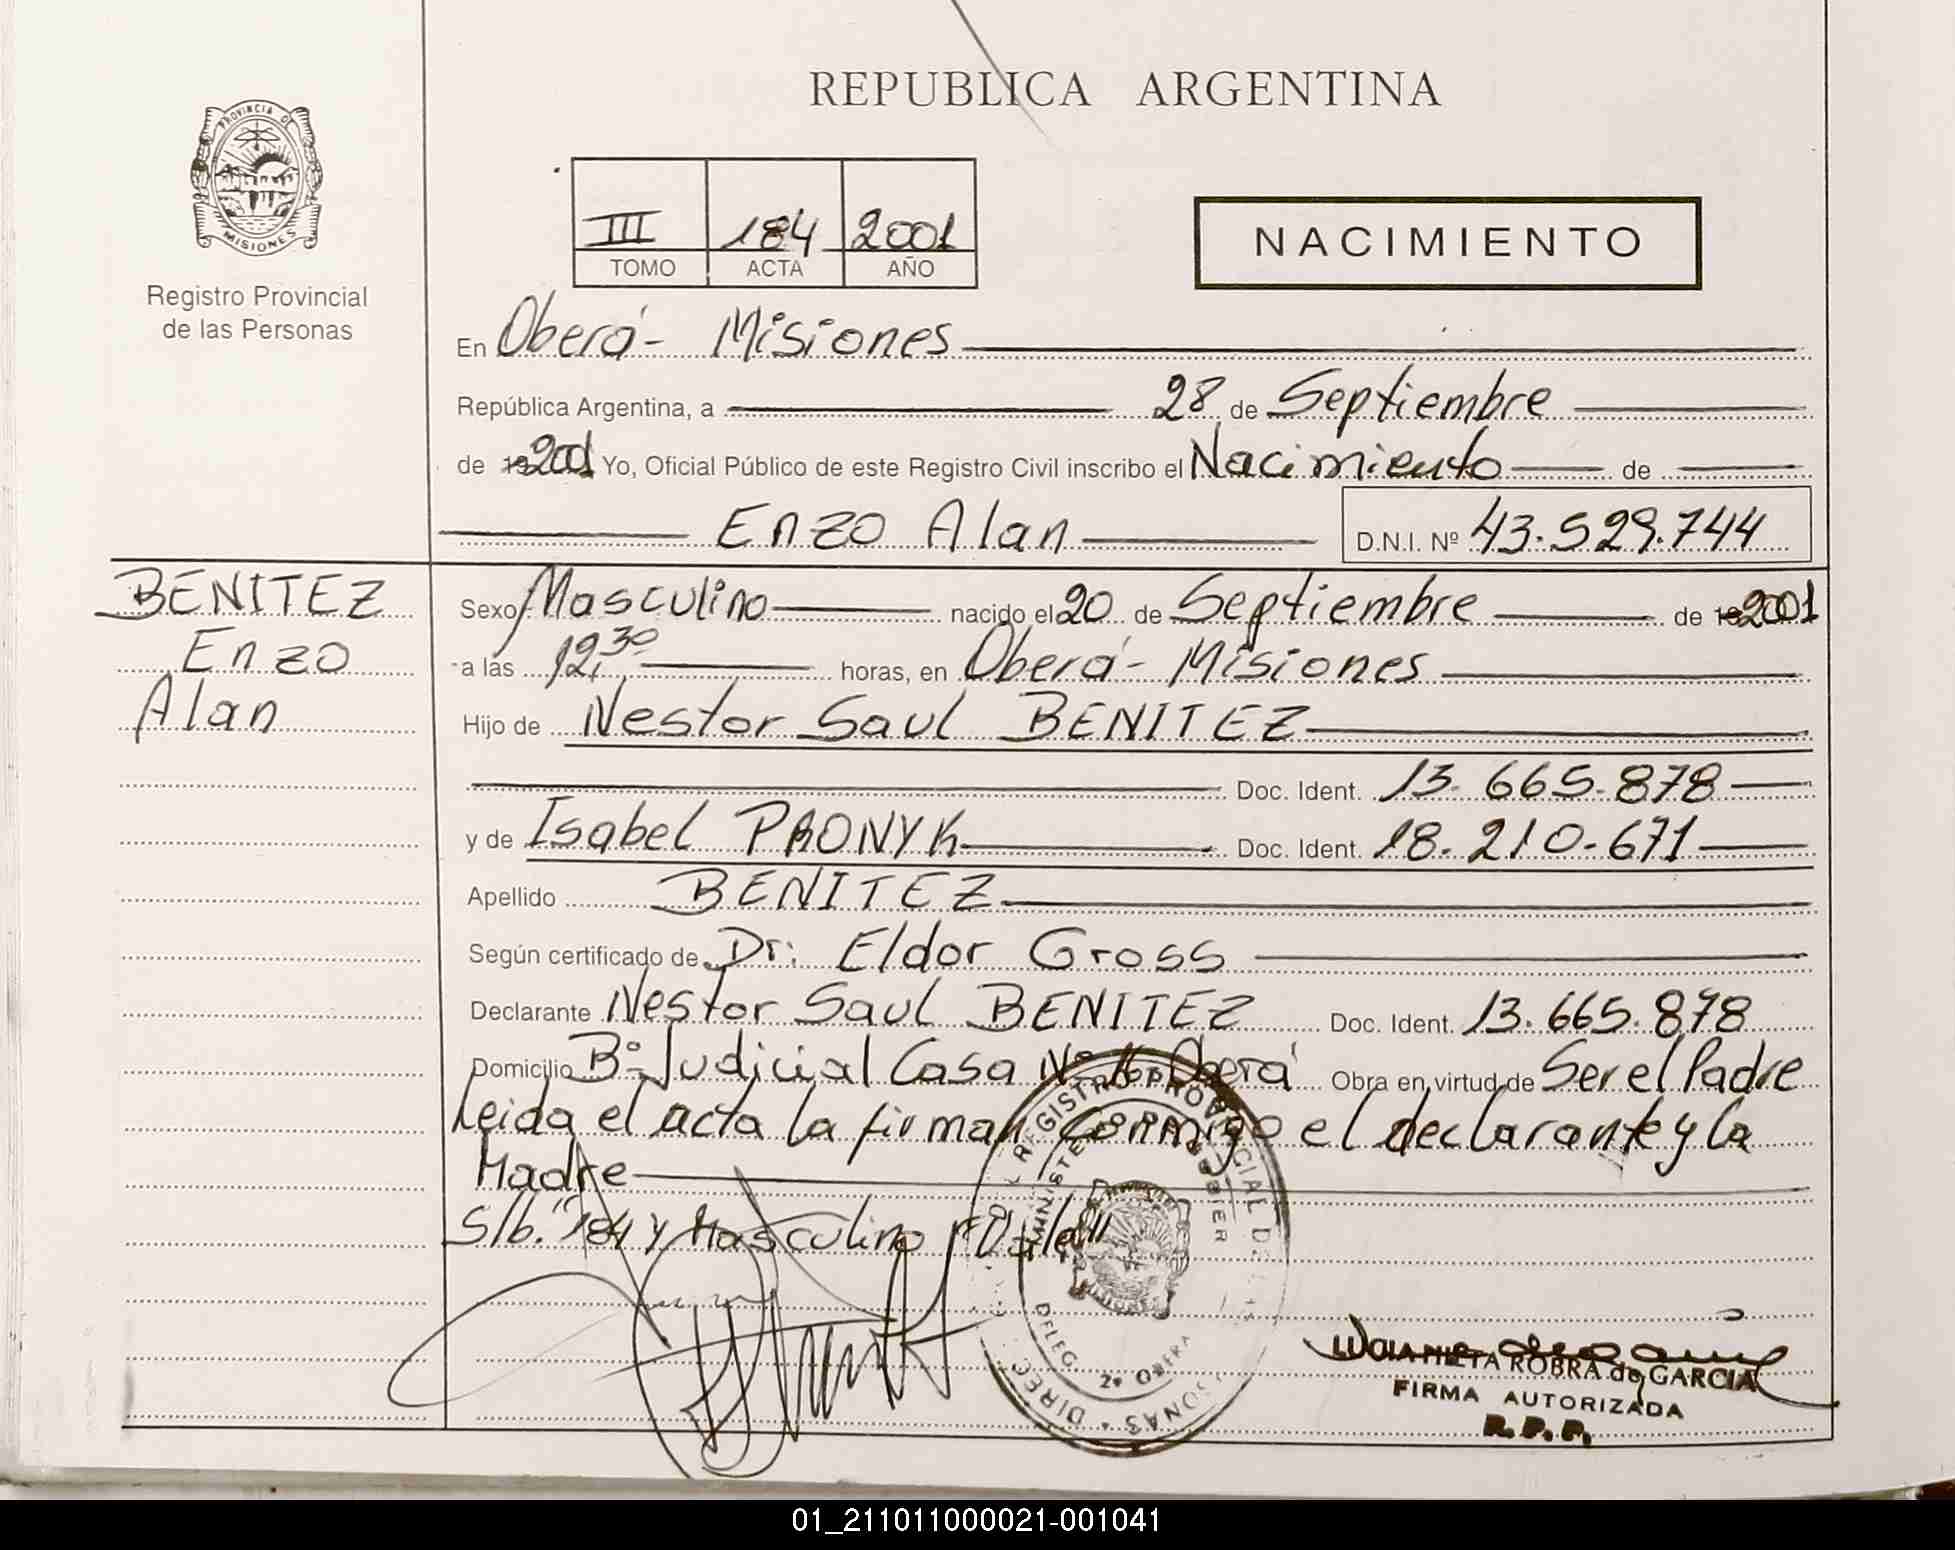 REPUBLICA ARGENTINA
PROVINCIA DE
MISIONES
Registro Provincial
de las Personas
III 184 2001
TOMO ACTA AÑO
NACIMIENTO
En Oberá - Misiones
República Argentina, a 28 de Septiembre
de 2001 Yo, Oficial Público de este Registro Civil inscribo el Nacimiento de
Enzo Alan D.N.I. Nº 43.529.744
BENITEZ
Enzo
Alan
Sexo Masculino nacido el 20 de Septiembre de 2001
a las 12,30 horas, en Oberá - Misiones
Hijo de Nestor Saul BENITEZ
Doc. Ident. 13.665.878
y de Isabel PRONYK Doc. Ident. 18.210.671
Apellido BENITEZ
Según certificado de Dr: Eldor Gross
Declarante Nestor Saul BENITEZ Doc. Ident. 13.665.878
Domicilio Bº Judicial Casa Nº 16 Oberá Obra en virtud de Ser el Padre
Leida el acta la firman conmigo el declarante y la
Madre
S/b. "184 y Masculino" Vale//
REGISTRO PROVINCIAL DE LAS
DIREC
ONAS
MINISTE
DELEG. OBERA
FIRMA AUTORIZADA
R.P.P.
01_211011000021-001041